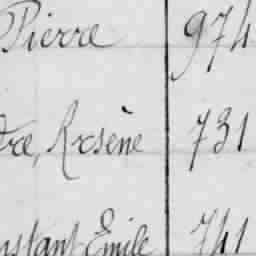 Pierre 974
dre, Arsène 731
nstant Émile 741